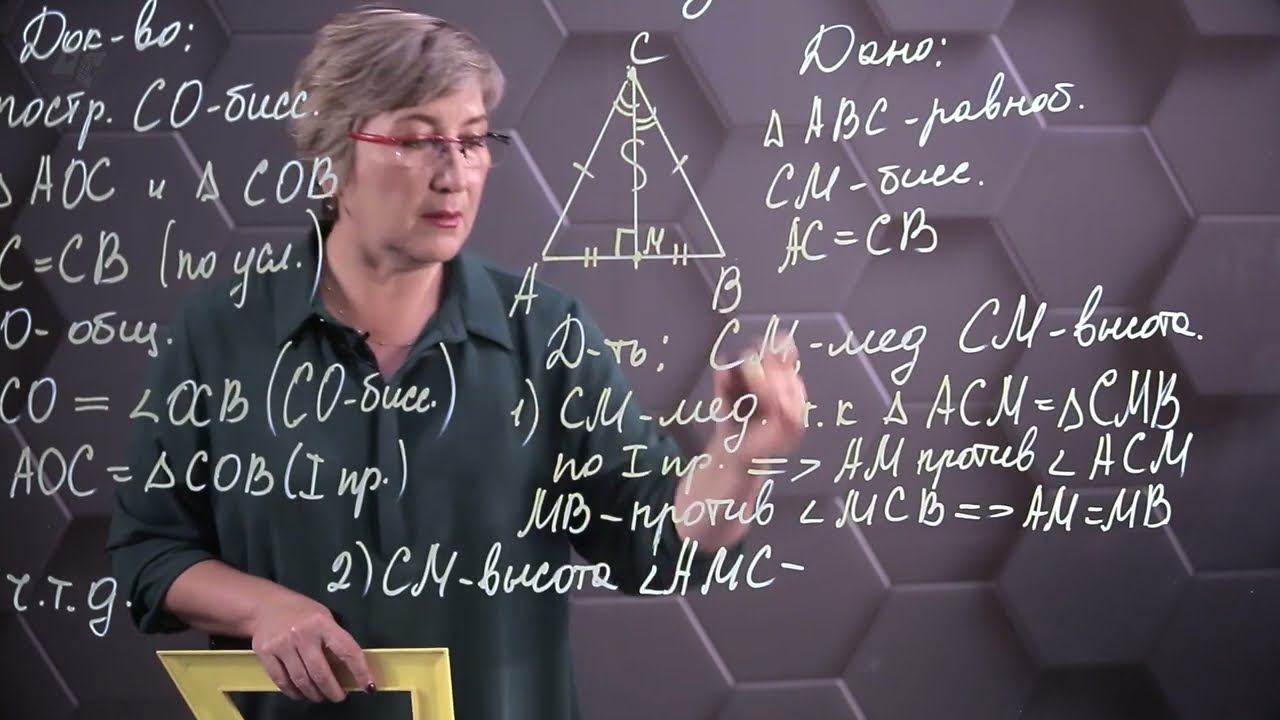 Док-во:
постр. CO-бисс.
Δ AOC и Δ COB
C = CB (по усл.)
O - общ.
CO = ∠OCB (CO-бисс.)
AOC = Δ COB (I пр.)
ч.т.д.
C
A
B
M
Дано:
Δ ABC - равноб.
CM - бисс.
AC = CB
Д-ть: CM - мед CM - высота.
1) CM - мед. т.к Δ ACM = Δ CMB
по I пр. => AM против ∠ ACM
MB - против ∠ MCB => AM = MB
2) CM - высота ∠AMC -